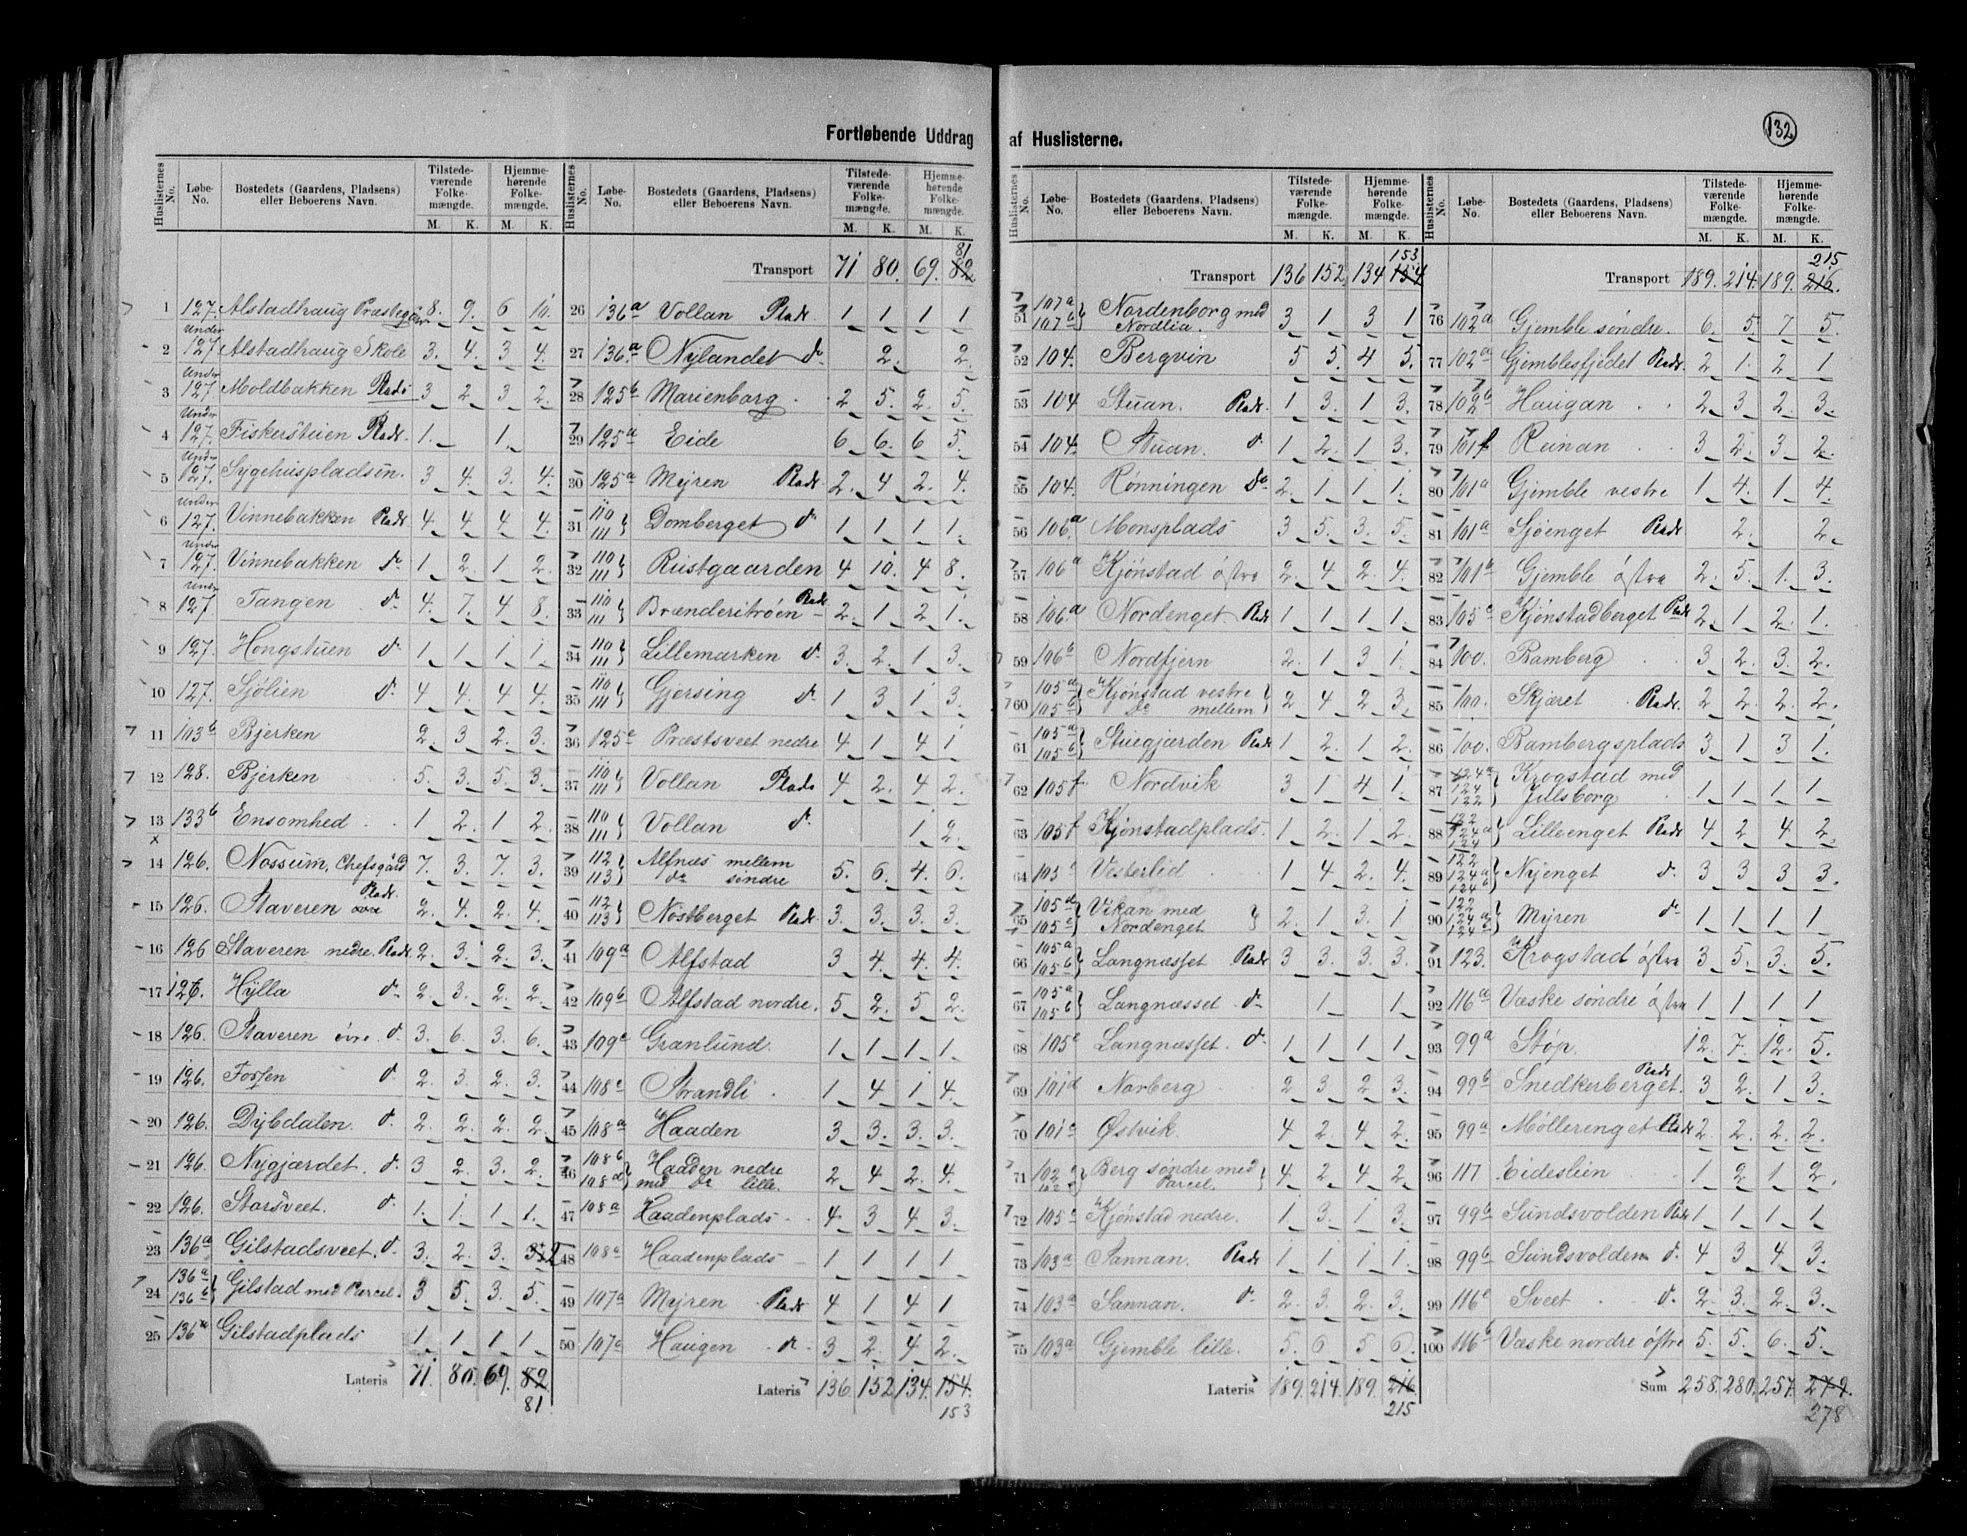 132
Fortløbende Uddrag af Huslisterne.
Huslisternes No. Løbe-No. Bostedets (Gaardens, Pladsens) eller Beboerens Navn. Tilstedeværende Folkemængde. M. K. Hjemmehørende Folkemængde. M. K.
1 127. Alstadhaug Præstegaar 8. 9. 6 10.
2 Under 127 Alstadhaug Skole 3. 4. 3 4.
3 Under 127 Moldbakken Plads 3 2 3 2.
4 Under 127. Fiskerstuen Plads. 1. 1.
5 Under 127. Sygehuspladsen. 3 4. 3. 4.
6 Under 127. Vinnebakken Plads 4. 4. 4. 4.
7 Under 127. Vinnebakken do 1 2. 1 2.
8 Under 127. Tangen do 4. 7. 4 8.
9 127. Hongstuen do 1 1 1 1
10 127. Sjölien do 4 4. 4. 4.
11 103b Bjerken 2. 3 2. 3.
12 128. Bjerken 5. 3. 5. 3.
13 133b Ensomhed 1 2. 1 2.
x
14 126. Nossum, Chefsgård 7. 3. 7. 3.
15 126. Staveren øvre Plads. 2. 4. 2. 4.
16 126 Staveren nedre. Plads. 2. 3. 2. 3.
17 126. Hylla do 2. 3. 2. 2.
18 126. Staveren övre do 3. 6. 3. 6.
19 126. Forsen do 2. 3. 2. 3.
20 126. Dybdalen. do 2. 2. 2. 2.
21 126. Nygjærdet. do 3 2. 3. 2.
22 126. Storsveet. do 1. 1. 1 1.
23 136a Gilstadsveet. do 3. 2. 3. 2
24 136a 136b Gilstad med Parcel. 3 5. 3. 5.
25 136a Gilstadplads 1 1 1 1
Lateris 71. 80. 69. 82 81
Huslisternes No. Løbe-No. Bostedets (Gaardens, Pladsens) eller Beboerens Navn. Tilstedeværende Folkemængde. M. K. Hjemmehørende Folkemængde. M. K.
81
Transport 71 80. 69. 82
26 136a Vollan Plads. 1 1 1 1
27 136a Nylandet do 2. 2.
28 125b Marienborg 2 5. 2. 5.
29 125a Eide 6 6. 6 5.
30 125a Myren Plads. 2. 4 2. 4.
31 110 111 Domberget do 1 1 1 1.
32 110 111 Rustgaarden 4 10. 4 8.
33 110 111 Brænderitrøen Plads 2 1 2 1.
34 110 111 Lillemarken do 3. 2. 1 3.
35 110 111 Gjørsing do 1 3 1 3.
36 125e Præstsveet nedre 4 1 4 1
37 110 111 Vollan Plads 4 2. 4 2.
38 110 111 Vollan do 1 2.
39 112 113 Alfnæs mellem do søndre 5. 6. 4. 6.
40 112 113 Nøstberget Plads 3. 3. 3. 3.
41 109a Alfstad 3 4. 4. 4.
42 109b Alfstad nordre. 5 2. 5 2.
43 109a Granlund. 1 1 1 1.
44 108c Strandli 1 4 1 4.
45 108a Haaden 3 3. 3. 3.
46 108b 108d Haaden nedre med do lille. 2 4 2. 4.
47 108a Haadenplads 4. 3 4. 3.
48 108a Haadenplads 1 1 1 1
49 107a Myren Plads 4 1 4 1
50 107a Haugen do 3 2. 4 2.
Lateris 136. 152 134. 154. 153
Huslisternes No. Løbe-No. Bostedets (Gaardens, Pladsens) eller Beboerens Navn. Tilstedeværende Folkemængde. M. K. Hjemmehørende Folkemængde. M. K.
153
Transport 136 152. 134 154
51 107a 107b Nordenborg med Nordlia. 3 1 3 1
52 104. Bergvin 5 5. 4 5.
53 104 Stuan. Plads. 1 3. 1 3.
54 104. Stuan. do 1 2. 1 3.
55 104. Rønningen Do 2. 1 1 1.
56 106a Monsplads 3 5. 3. 5.
57 106a Kjønstad østre 2. 4 2. 4.
58 106a Nordenget. Plads 1 1 1 1.
59 106b Nordfjern 2. 1 3 1.
60 105a 105b Kjønstad vestre Do mellem 2 4 2 3.
61 105a 105b Stuegjærden Plads 1 2. 1 2.
62 105f. Nordvik 3 1 4 1.
63 105f Kjønstadplads. 1 2. 1 2.
64 105c Vesterlid 1 4 2. 4.
65 105d 105c Vikan med Nordenget 2. 1 3. 1
66 105a 105b Langnæsset Plads 3 3. 3. 3.
67 105a 105b Langnæsset do 1 1
68 105c Langnæsset. do 1 1 1 1.
69 101d Norberg 2 3 2 3.
70 101c Østvik. 4 2 4 2.
71 102 Berg søndre med Parcel. 4. 2 4 2.
72 105c Kjønstad nedre. 1 3. 1 3.
73 103a Sannan. Plads 1 1 1 1.
74 103a Sannan. do 2. 3. 2. 3.
75 103a Gjemble lille. 5. 6 5 6.
Lateris 189. 214. 189. 216 215
Huslisternes No. Løbe-No. Bostedets (Gaardens, Pladsens) eller Beboerens Navn. Tilstedeværende Folkemængde. M. K. Hjemmehørende Folkemængde. M. K.
215
Transport 189. 214. 189. 216.
76 102a Gjemble søndre. 6. 5. 7 5.
77 102a Gjemblesfjedet Plads. 2 1. 2 1
78 102b Haugan 2 3 2. 3.
79 101f Reinan 3 2. 3. 2.
80 101a Gjemble vestre 1 4. 1 4.
81 101a Sjøenget Plads 2. 2.
82 101b Gjemble østre 2. 5. 1. 3.
83 105a Kjønstadberget Plads 2. 1 2. 1.
84 100. Bamberg 3 2. 3. 2.
85 100. Skjæret Plads. 2 2. 2. 2.
86 100. Bambergsplads 3 1 3 1.
87 124a 124 122 Krogstad med Jillsborg 1 1 1 1
88 122 124a 124 Lilleenget Plads 4 2 4 2.
89 122 124a 124b Nyenget do 3 3 3 3.
90 122 124a 124 Myren do 1 1 1 1.
91 123. Krogstad østre 3. 5. 3 5.
92 116a Væske søndre østre 1 1 1 1
93 99a Støp. 12. 7. 12. 5.
94 99b Snedkerberget. Plads 3 2. 1 3.
95 99a Møllerenget Plads 2. 2. 2. 2.
96 117 Eideslien 1 2 1 2.
97 99b Sundsvolden Plads 1 1 1 1
98 99b Sundsvolden do 4 3 4 3.
99 116c Sveet do 2. 3. 2. 3.
100 116b Væske nordre østre 5. 5. 6. 5.
Sum 258. 280. 257. 279. 278